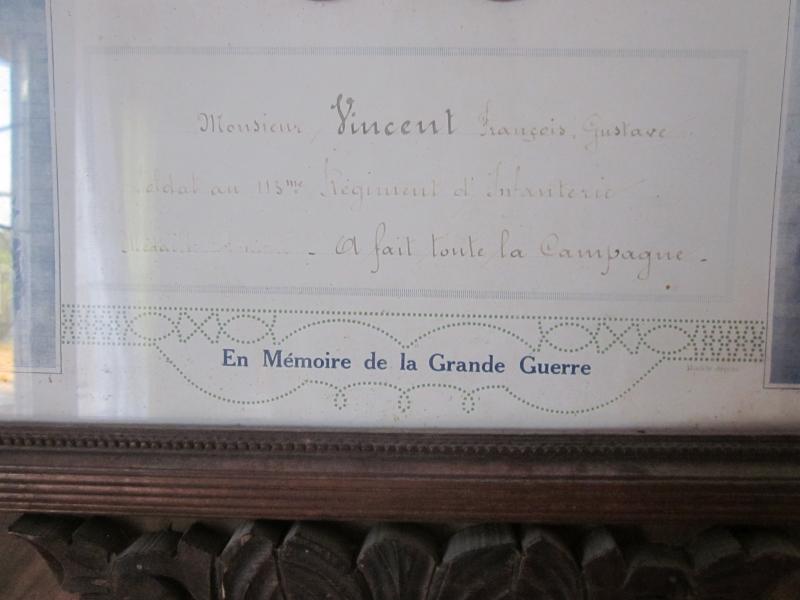 Monsieur Vincent François, Gustave
Soldat au 113me Régiment d'Infanterie
Médaille - A fait toute la Campagne.
En Mémoire de la Grande Guerre
Modèle déposé